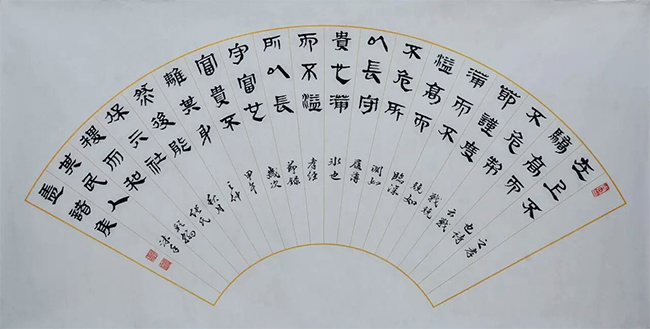 在上不
驕高而
不危制
節謹度
滿而不
溢高而
不危所
以長守
貴也滿
而不溢
所以長
守富也
富貴不
離其身
然後能
保其社
稷而和
其民人
蓋諸侯
之孝
也詩
云戰
戰兢
兢如
臨深
淵如
履薄
冰也
孝經
節錄
歲次
甲午
之仲
秋月